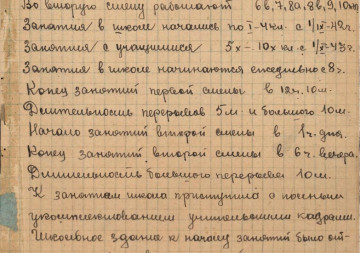 Во вторую смену работают 6в, 7, 8а, 8б, 9, 10кл
Занятия в школе начались по I-4кл. с 1/IX-42г.
Занятия с учащимися 5х - 10х кл. с 1/XI-43г.
Занятия в школе начинаются ежедневно с 8 г.
Конец занятий первой смены в 12ч. 10м.
Длительность перерывов 5м и большого 10м.
Начало занятий второй смены в 1 ч. дня.
Конец занятий второй смены в 6 ч. вечера.
Длительность большого перерыва 10м.
К занятиям школа приступила с полным
укомплектованием учительскими кадрами.
Школьное здание к началу занятий было от-